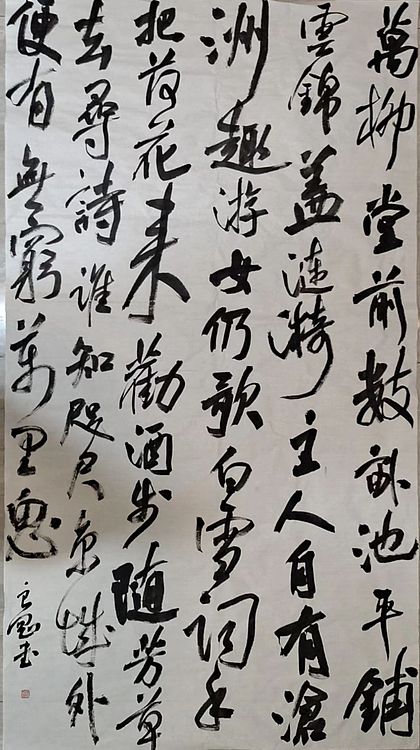 萬柳堂前數畝池平鋪
雲錦盖漣漪主人自有滄
洲趣游女仍歌白雪詞手
把荷花来勸酒步隨芳草
去尋詩誰知咫尺京城外
便有無窮萬里思